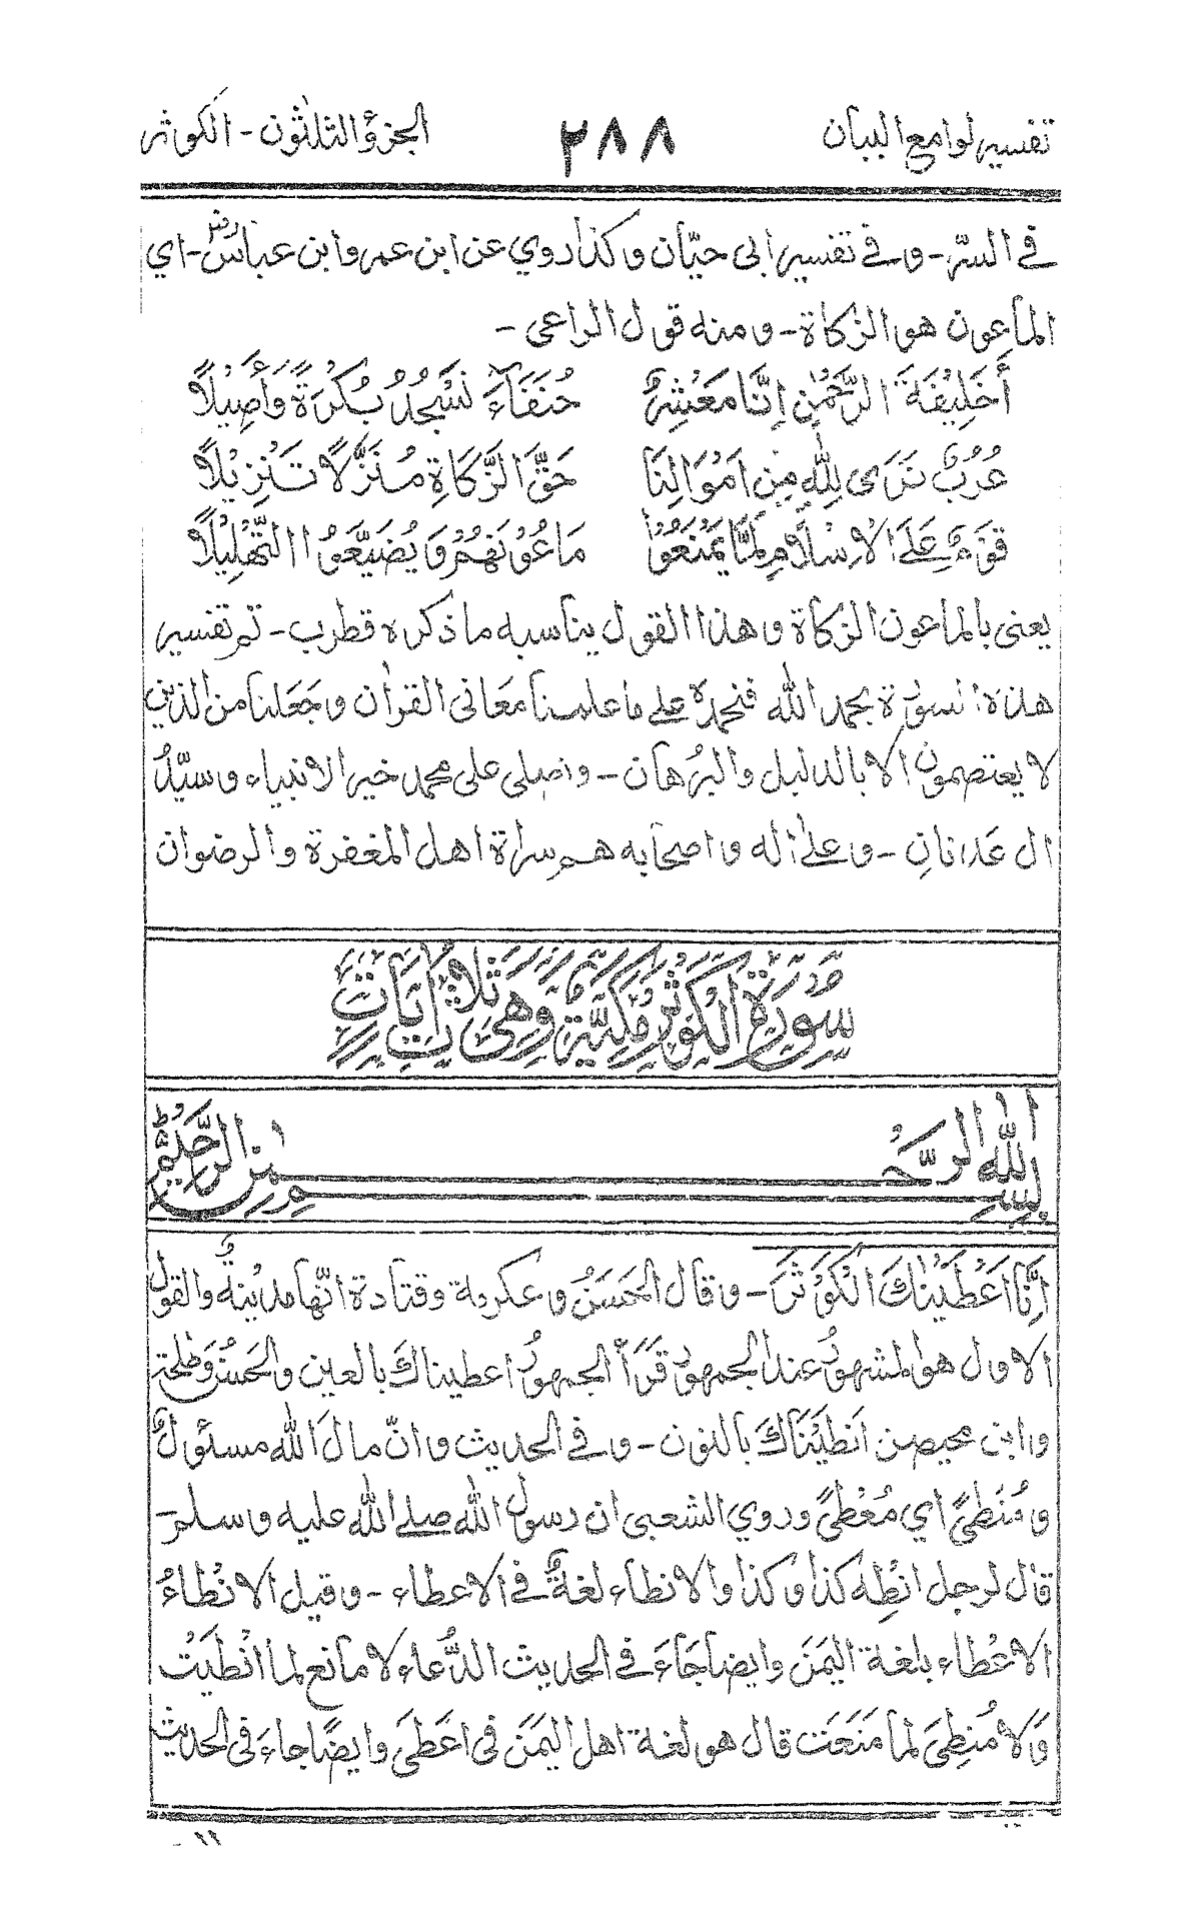 تفسير لوامع البيان ٢٨٨ الجزؤ الثلثون - الكوثر
في السرّ - وفي تفسير ابى حيّان وكذا روي عن ابن عمر وابن عباسؓ - اي
الماعون هو الزكاة - ومنه قول الراعى -
أَخَلِيْفَةَ الرَّحْمٰنِ اِنَّا مَعْشِرٌ حُنَفَاءَ نَسْجُدُ بُكْرَةً وَأَصِيْلًا
عُرُبٌ نَرٰى لِلّٰهِ مِنْ اَمْوَالِنَا حَقَّ الزَّكَاةِ مُنَزَّلًا تَنْزِيْلًا
قَوْمٌ عَلَى الْاِسْلَامِ لَمَّا يَمْنَعُوْا مَاعُوْنَهُمْ وَيُضَيَّعُوا التَّهْلِيْلًا
يعنى بالماعون الزكاة وهذا القول يناسبه ما ذكره قطرب - تم تفسير
هذه السورة بحمد الله فنحمدهٗ على ما علمنا معانى القران وجعلنا من الذين
لا يعتصمون الا بالدليل والبرهان - واصلى على محمد خير الانبياء وسيّد
ال عدنان - وعلى اله واصحابه هم سراة اهل المغفرة والرضوان
سُوْرَةُ الْكَوْثَرِ مَكِيَّةٌ وَهِىَ ثَلَاثُ اٰيَاتٍ
بسم الله الرحمن الرحيم
اِنَّا اَعْطَيْنٰكَ الْكَوْثَرَ - وقال الحَسَنُ وعكرمة وقتادة انّها مدينةٌ والقول
الاول هو المشهورُ عند الجمهور قَرَأَ الجمهورُ اعطيناكَ بالعين والحَسَنُ وطلحة
وابن محيصن اَنْطَيْنَاكَ بالنون - وفي الحديث وانّ مال الله مسئولٌ
ومُنطَىً اي مُعْطىً وروي الشعبى ان رسول الله صلى الله عليه وسلم -
قال لرجل انْطِه كذا وكذا والانطاء لغةٌ في الاعطاء - وقيل الانْطاءُ
الاعْطاء بلغة اليمَنَ وايضا جَاءَ في الحديث الدُّعاء لا مانع لما انْطَيْتَ
وَلا مُنْطِىَ لما مَنَعَت قال هو لغة اهل اليَمَن فى اعَطَىَ وايضًا جاءَ فى الحديث